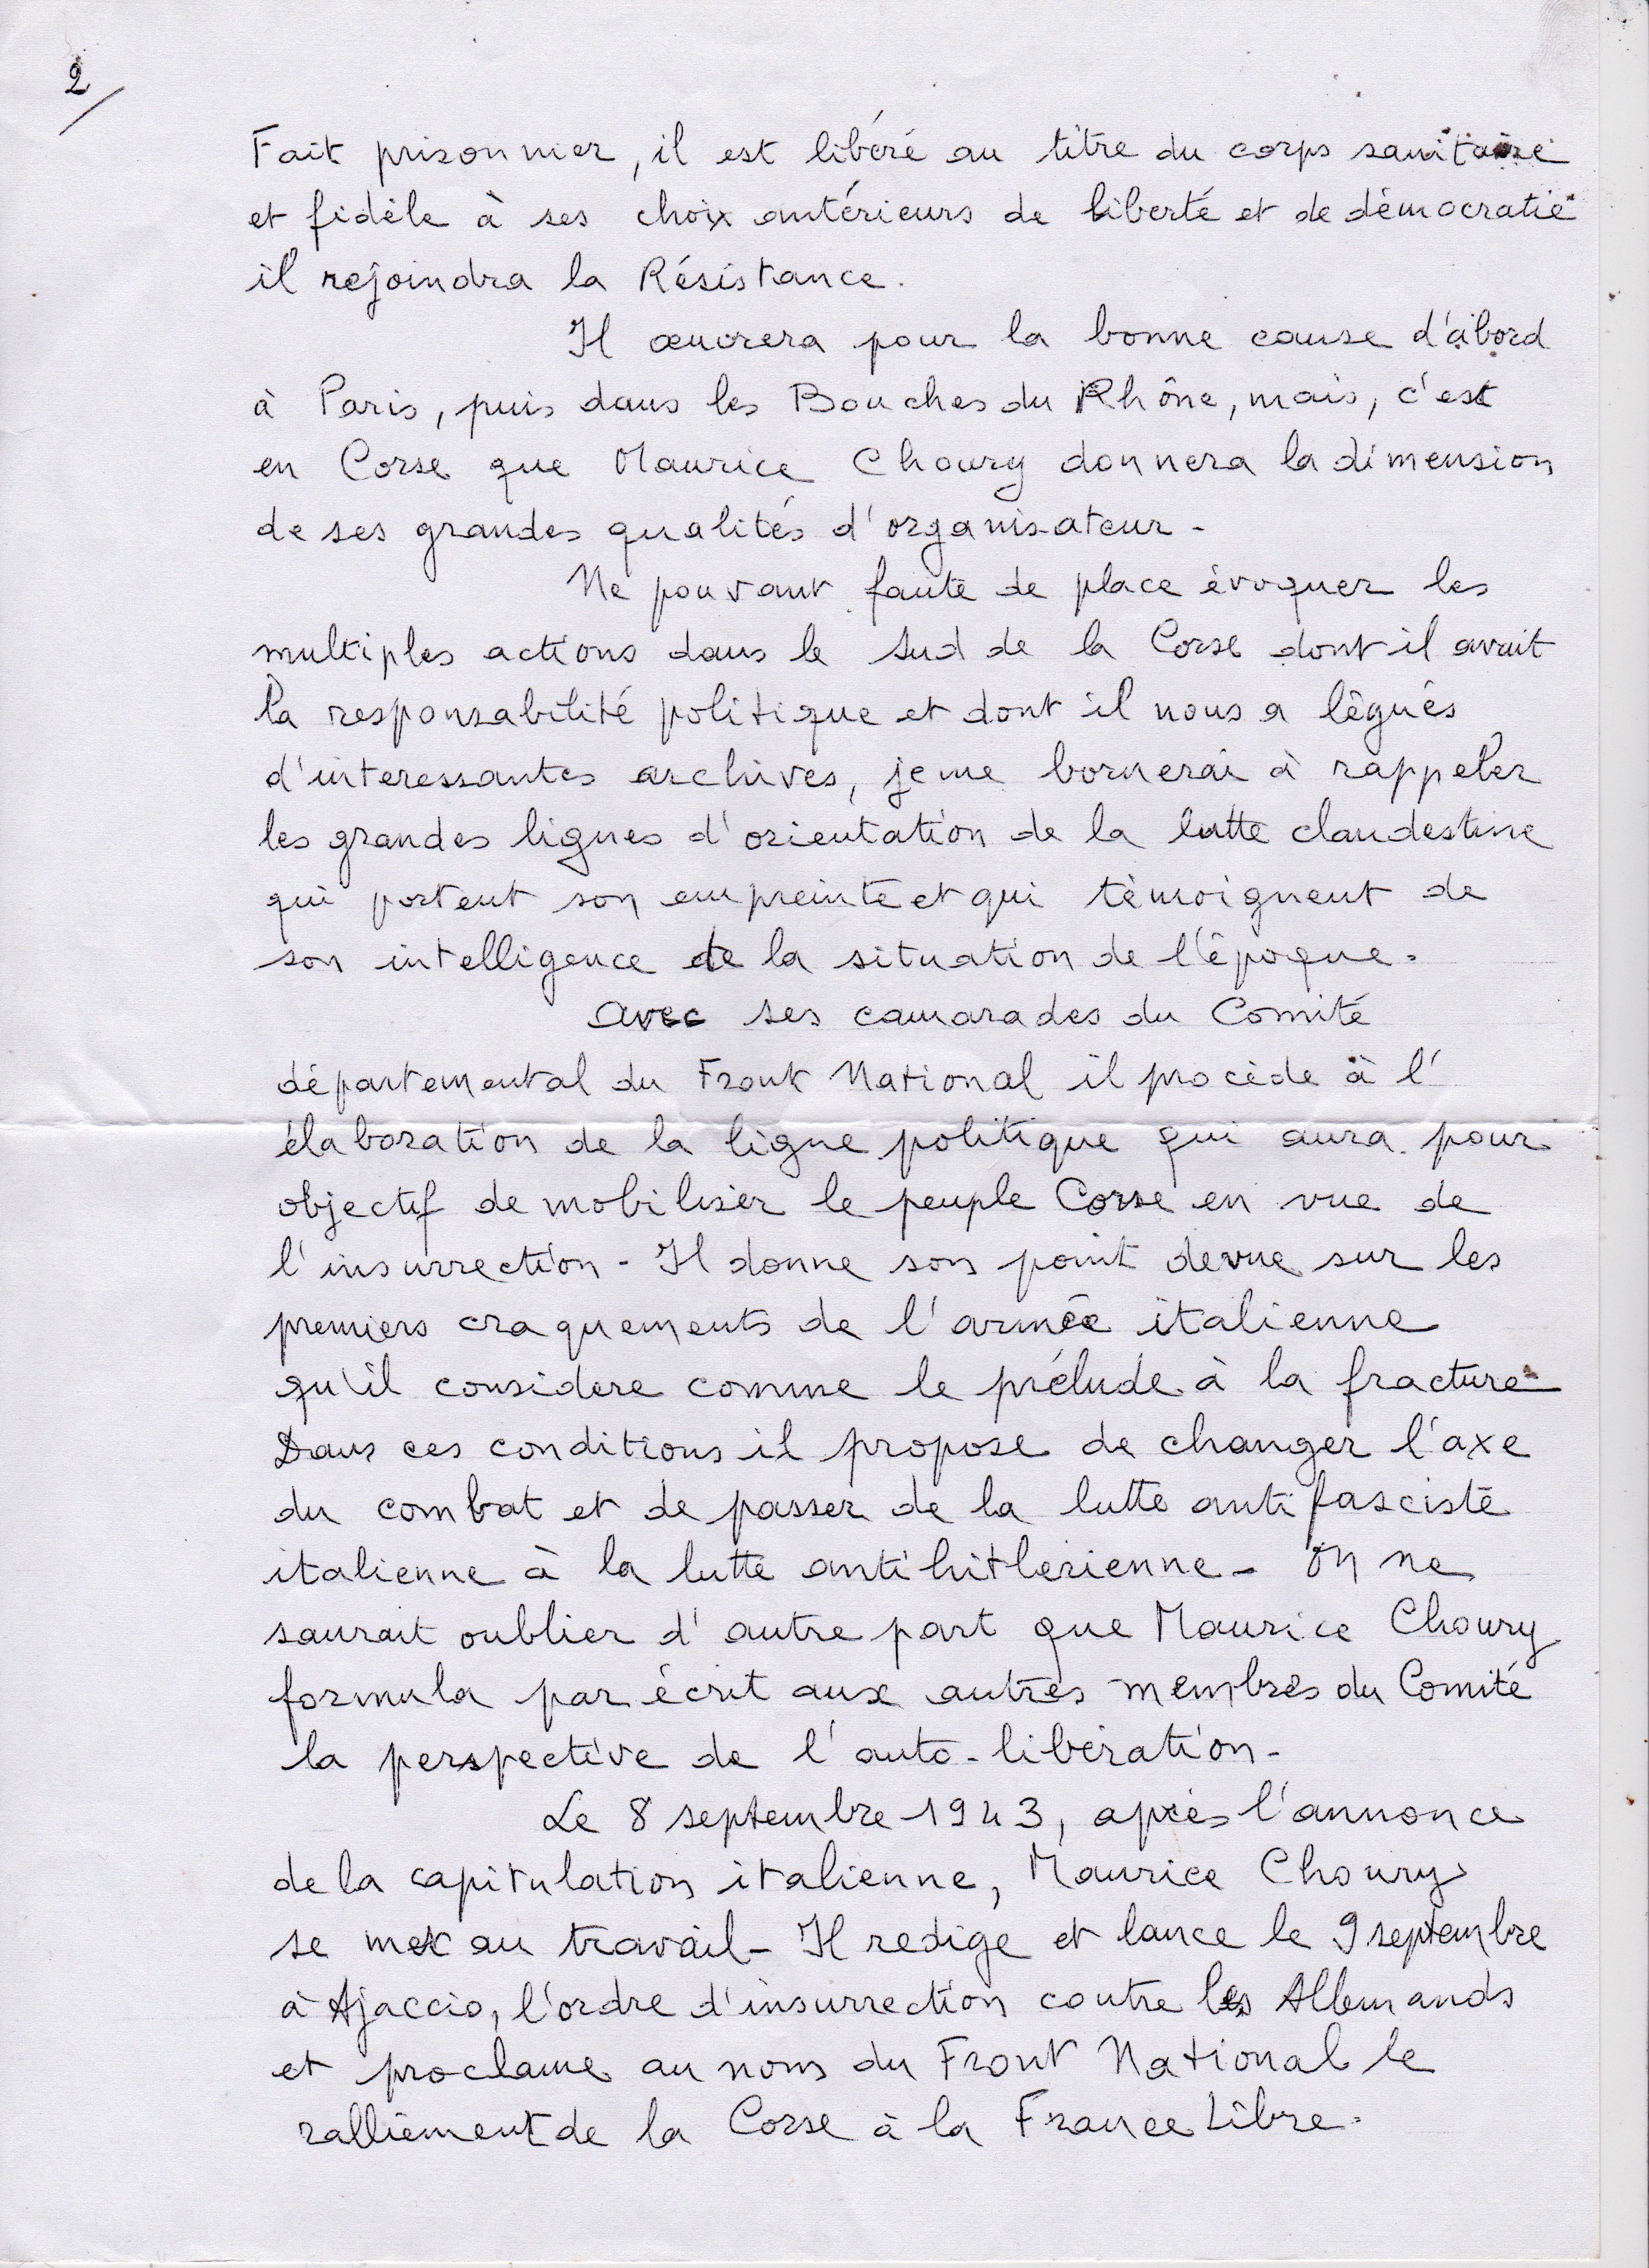 2/
Fait prisonnier, il est libéré au titre du corps sanitaire
et fidèle à ses choix antérieurs de liberté et de démocratie
il rejoindra la Résistance.
Il œuvrera pour la bonne cause d'abord
à Paris, puis dans les Bouches du Rhône, mais, c'est
en Corse que Maurice Choury donnera la dimension
de ses grandes qualités d'organisateur -
Ne pouvant faute de place évoquer les
multiples actions dans le sud de la Corse dont il avait
la responsabilité politique et dont il nous a légués
d'interessantes archives, je me bornerai à rappeler
les grandes lignes d'orientation de la lutte clandestine
qui portent son empreinte et qui témoignent de
son intelligence de la situation de l'époque.
avec ses camarades du Comité
départemental du Front National il procède à l'
élaboration de la ligne politique qui aura pour
objectif de mobiliser le peuple Corse en vue de
l'insurrection - Il donne son point de vue sur les
premiers craquements de l'armée italienne
qu'il considere comme le prélude à la fracture
Dans ces conditions il propose de changer l'axe
du combat et de passer de la lutte anti fasciste
italienne à la lutte antihitlerienne - On ne
saurait oublier d'autre part que Maurice Choury
formula par écrit aux autres membres du Comité
la perspective de l'auto-libération -
Le 8 septembre 1943, après l'annonce
de la capitulation italienne, Maurice Choury
se met au travail - Il redige et lance le 9 septembre
à Ajaccio, l'ordre d'insurrection contre les Allemands
et proclame au nom du Front National le
ralliement de la Corse à la France Libre.